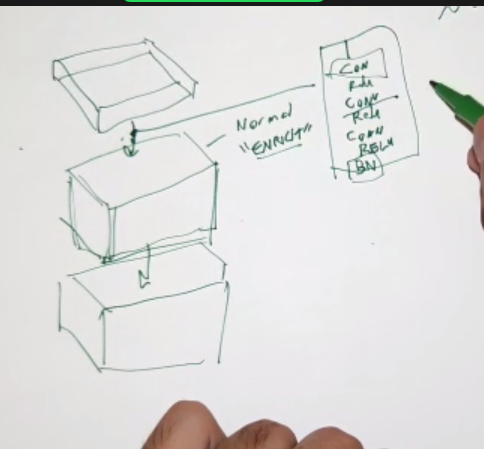 Normal
"ENRICH"
CON
Relu
CONV
Relu
CONV
RELU
BN